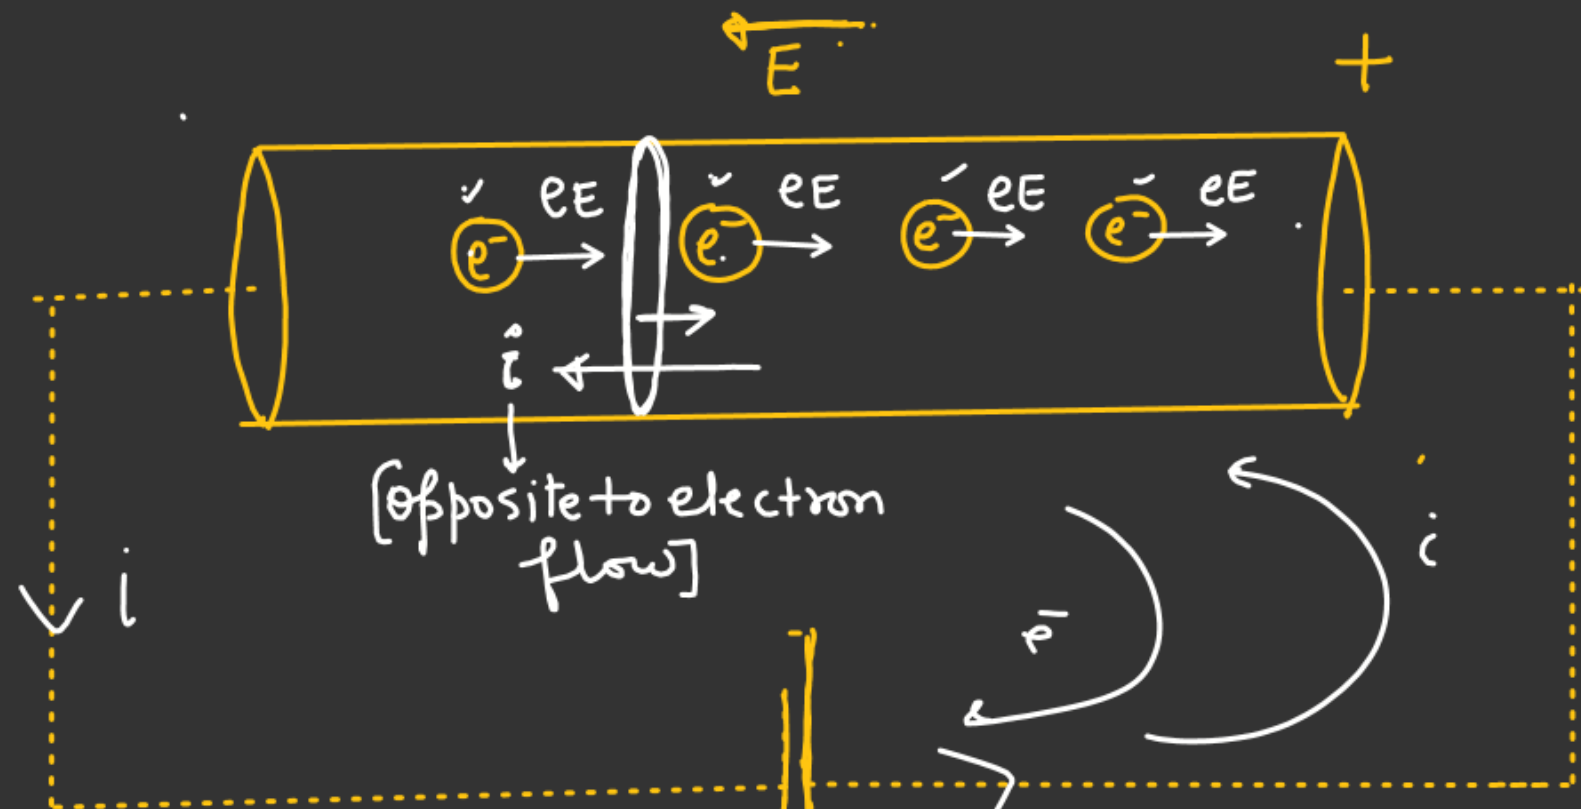 E
+
eE eE eE eE
e⁻ e⁻ e⁻ e⁻
i
[opposite to electron
flow]
i
i
e⁻